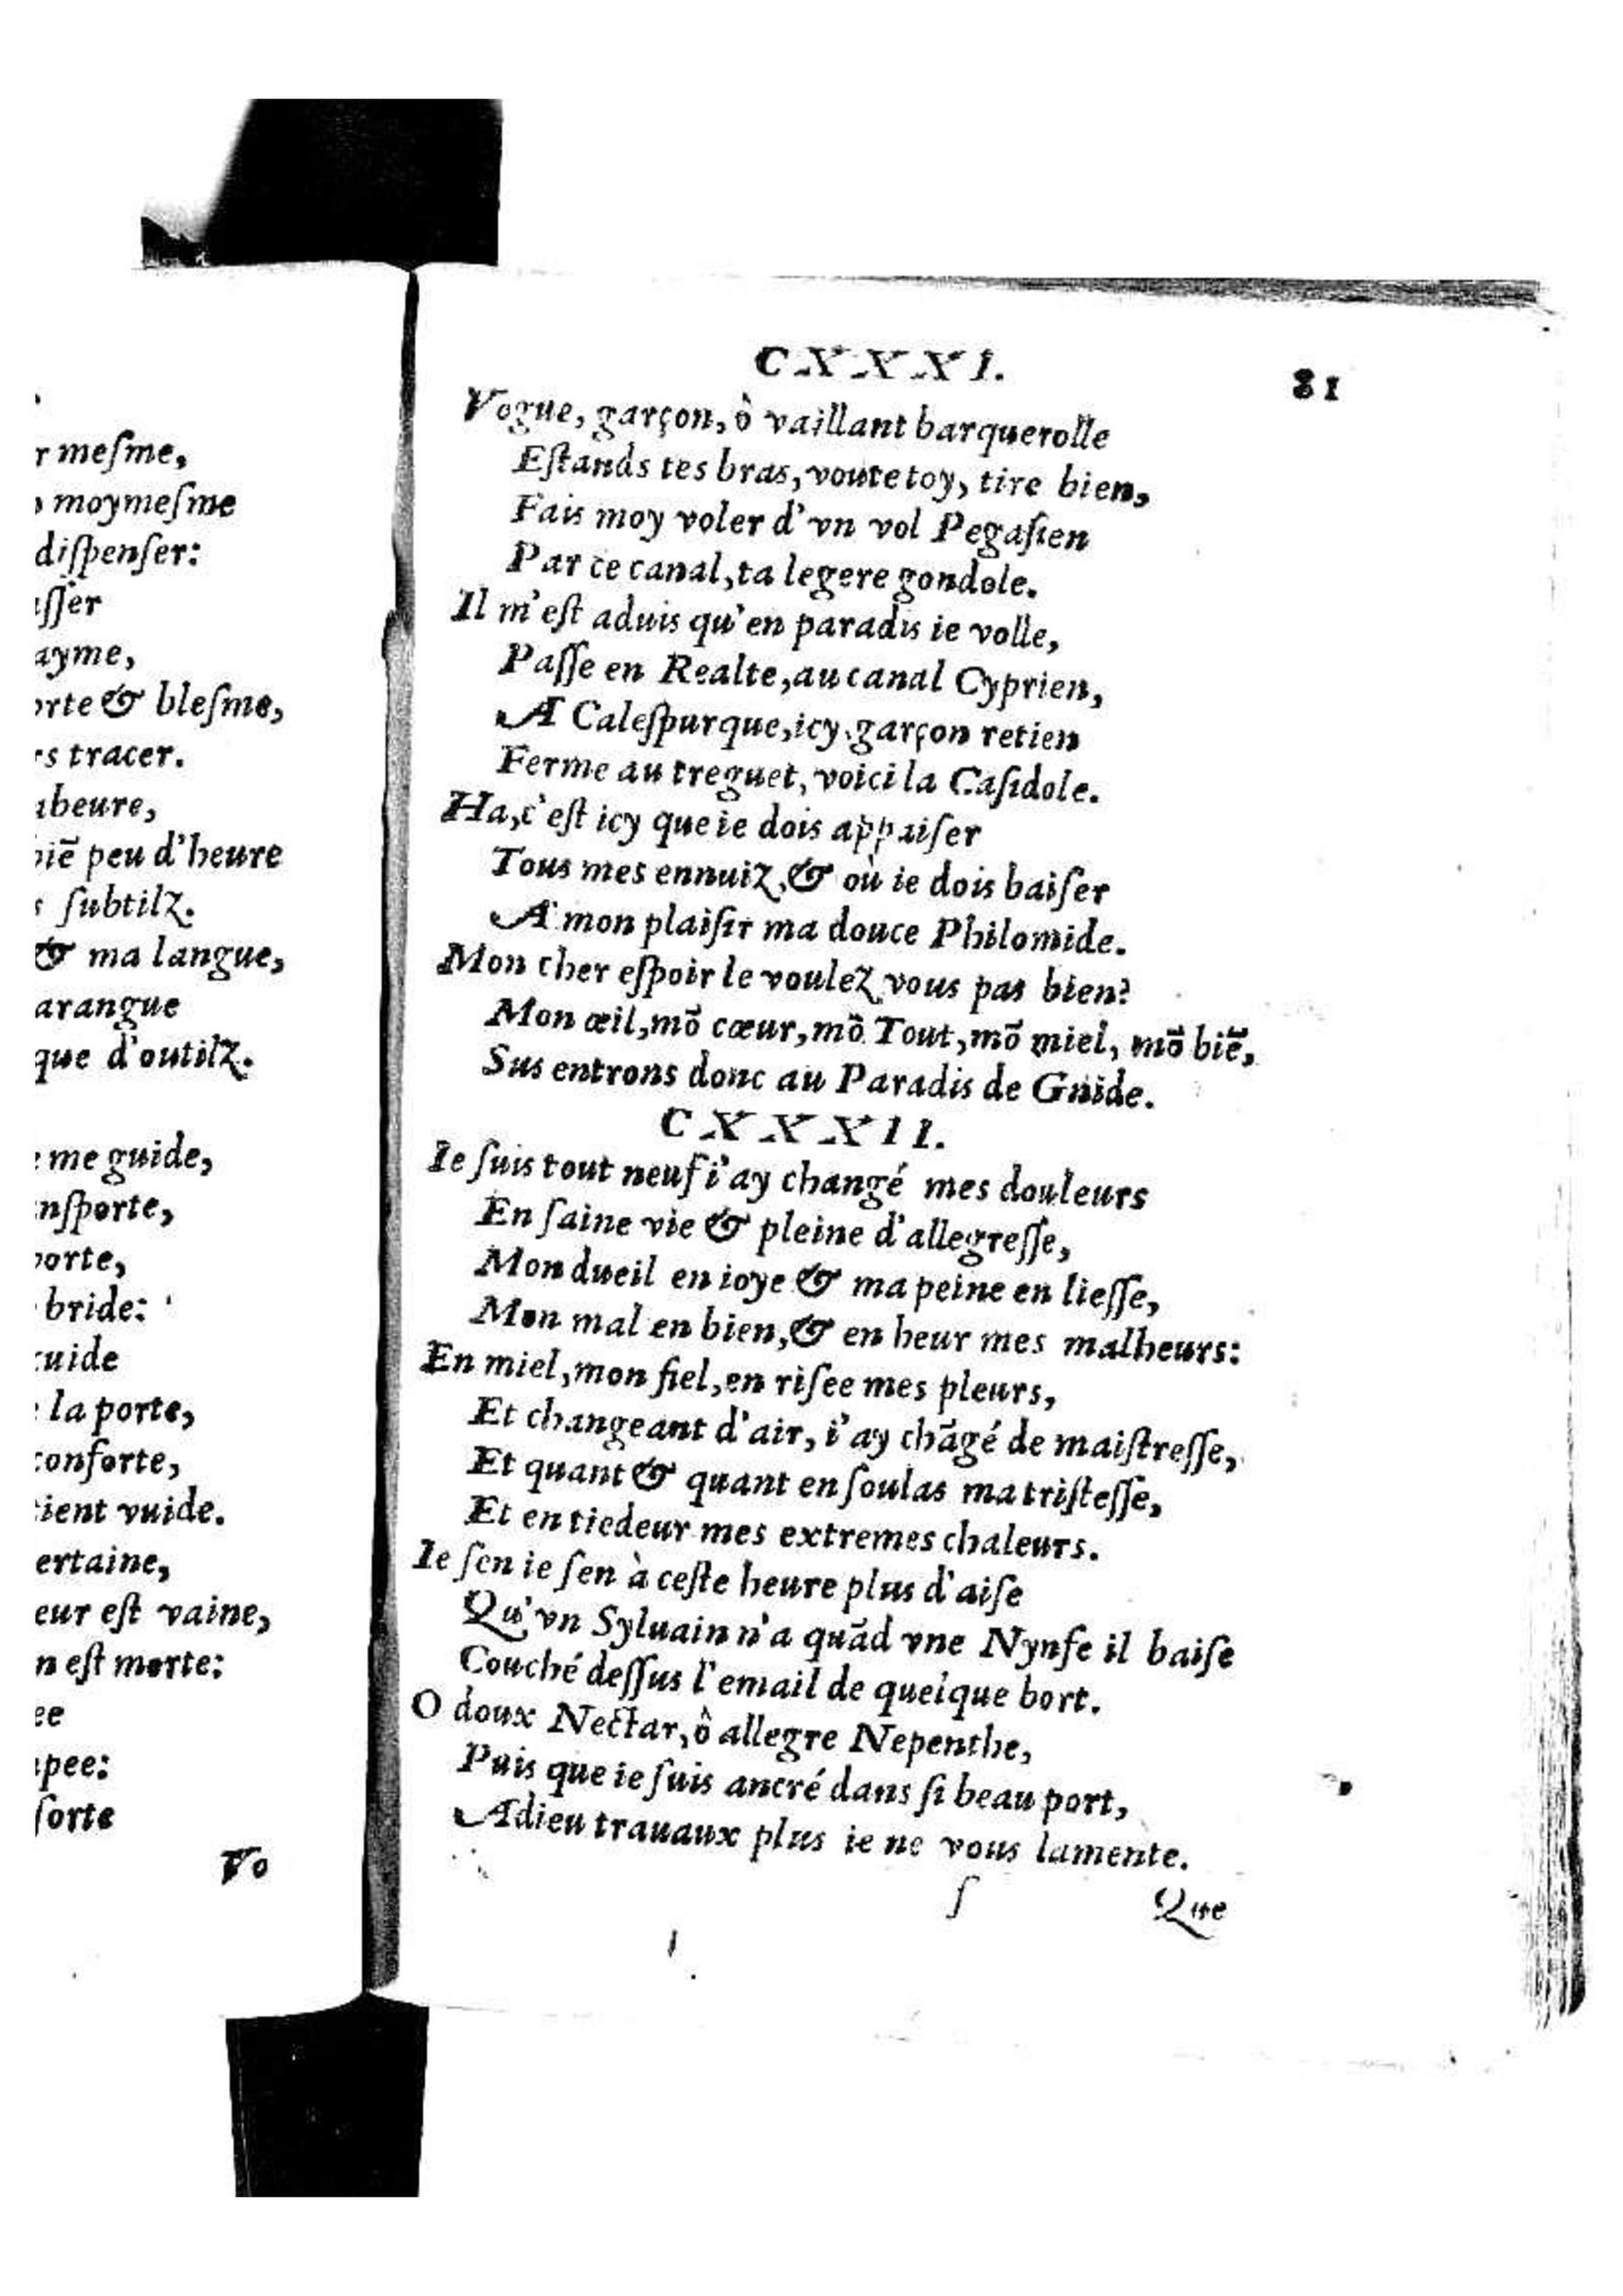 r meſme,
moymeſme
diſpenſer:
ſſer
ayme,
orte & bleſme,
s tracer.
beure,
biē peu d'heure
ſubtilz.
& ma langue,
arangue
que d'outilz.
me guide,
nſporte,
porte,
bride:
uide
la porte,
conforte,
tient vuide.
ertaine,
eur eſt vaine,
n eſt morte:
ee
pee:
ſorte
Vo
CXXXI.
81
Vogue, garçon, ô vaillant barquerolle
Eſtands tes bras, voute toy, tire bien,
Fais moy voler d'vn vol Pegaſien
Par ce canal, ta legere gondole.
Il m'eſt aduis qu'en paradis ie volle,
Paſſe en Realte, au canal Cyprien,
A Caleſpurque, icy garçon retien
Ferme au treguet, voici la Caſidole.
Ha, c'eſt icy que ie dois appaiſer
Tous mes ennuiz, & où ie dois baiſer
A mon plaiſir ma douce Philomide.
Mon cher eſpoir le voulez vous pas bien?
Mon œil, mō cœur, mō Tout, mō miel, mō biē,
Sus entrons donc au Paradis de Gnide.
CXXXII.
Ie ſuis tout neuf i'ay changé mes douleurs
En ſaine vie & pleine d'allegreſſe,
Mon dueil en ioye & ma peine en lieſſe,
Mon mal en bien, & en heur mes malheurs:
En miel, mon fiel, en riſee mes pleurs,
Et changeant d'air, i'ay chāgé de maiſtreſſe,
Et quant & quant en ſoulas ma triſteſſe,
Et en tiedeur mes extremes chaleurs.
Ie ſen ie ſen à ceſte heure plus d'aiſe
Qu'vn Syluain n'a quād vne Nynfe il baiſe
Couché deſſus l'email de quelque bort.
O doux Nectar, ô allegre Nepenthe,
Puis que ie ſuis ancré dans ſi beau port,
Adieu trauaux plus ie ne vous lamente.
ſ
Que